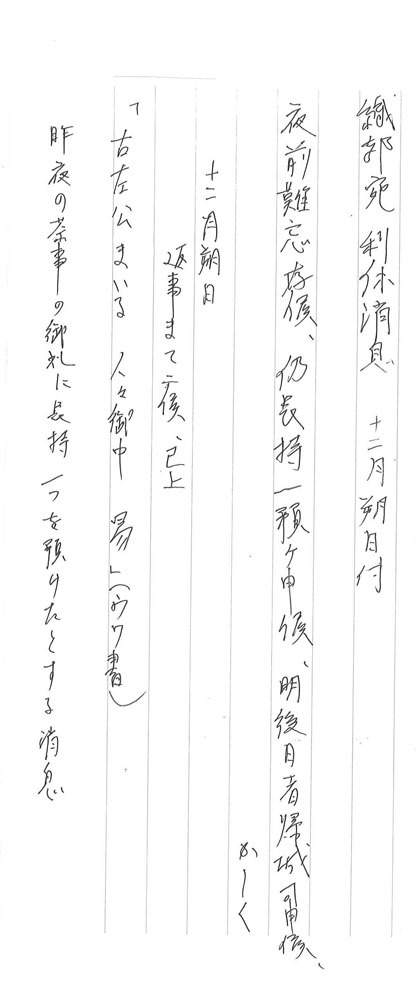 織部宛 利休消息 十二月朔日付
夜前難忘存候、仍長持一預ケ申候、明後日者帰城可申候、
かしく
十二月朔日
返事まて候、已上
「古左公まいる 人々御中 易」(ウワ書)
昨夜の茶事の御礼に長持一つを預けたとする消息